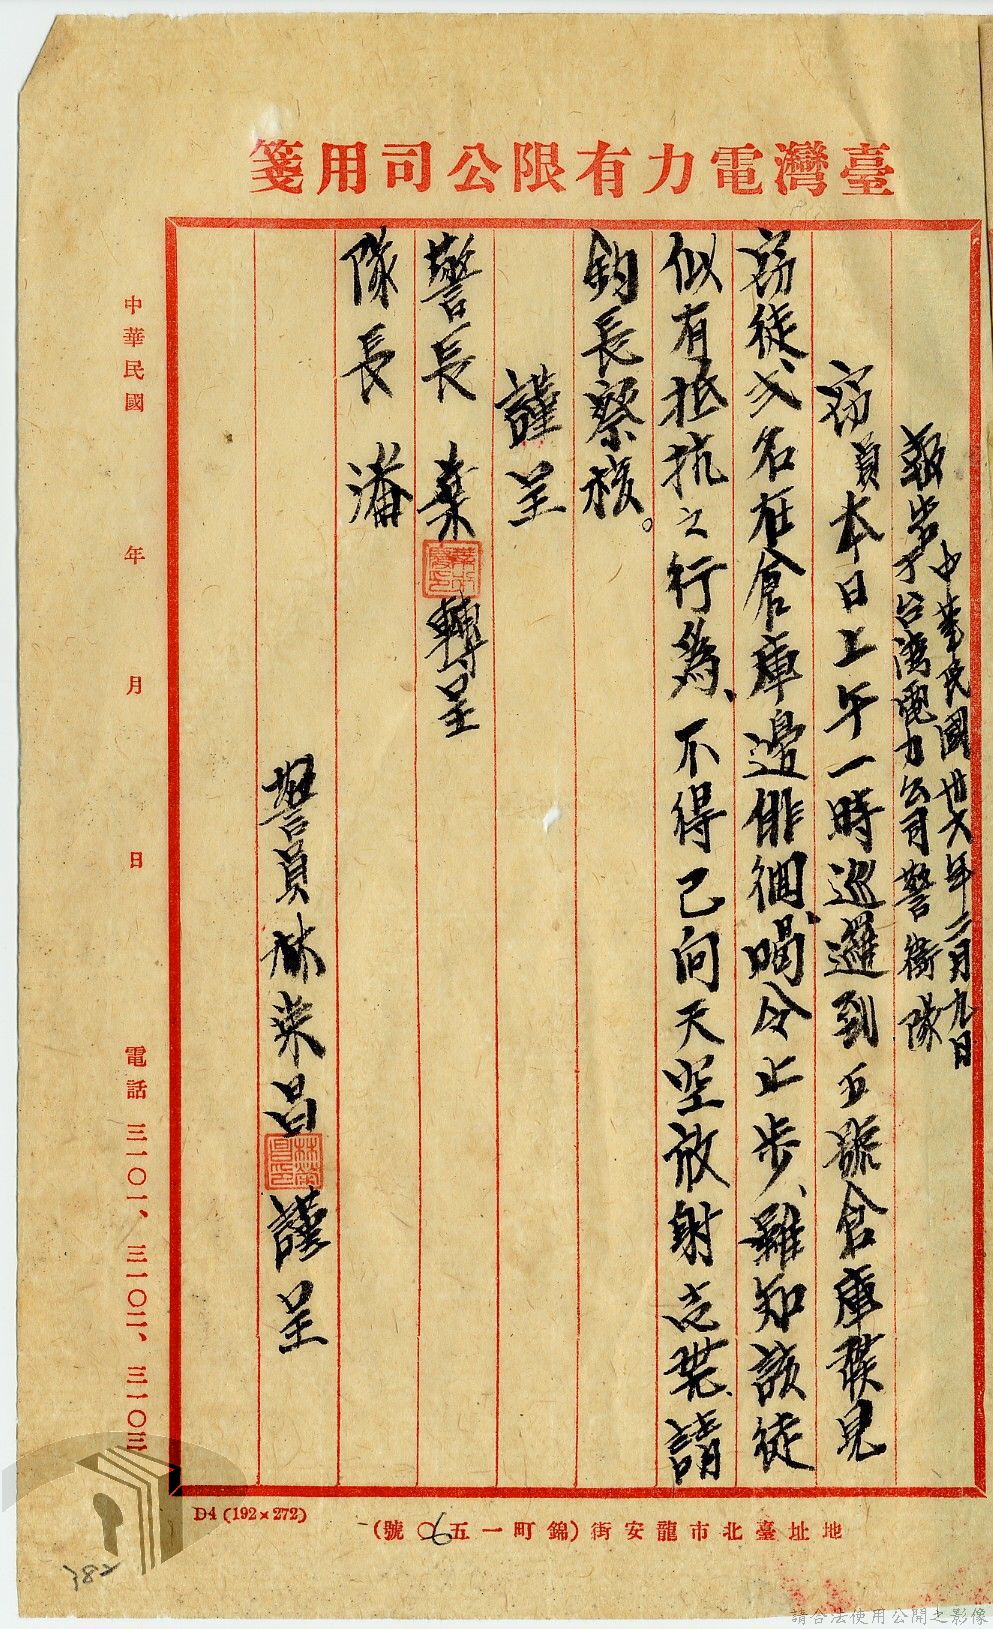 臺灣電力有限公司用箋
中華民國卅六年二月九日
報告于台湾電力公司警衛隊
窃員本日上午一時巡邏到五號倉庫發見
窃徒弍名在倉庫邊俳徊、喝令止步、雖知該徒
似有抵抗之行為、不得已向天空放射壱發、請
鈞長察核。
謹呈
警長 葉 轉呈
隊長 潘
警員林荣昌 謹呈
中華民國 年 月 日 電話 三一〇一、三一〇二、三一〇三
地址臺北市龍安街(錦町一五六號)
D4 (192×272)
382
請合法使用公開之影像